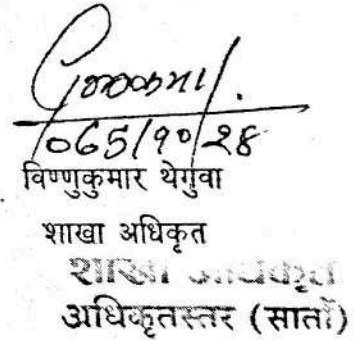 ०६५/१०/२४
विष्णुकुमार थेगुवा
शाखा अधिकृत
शाखा अधिकृत
अधिकृतस्तर (सातौं)